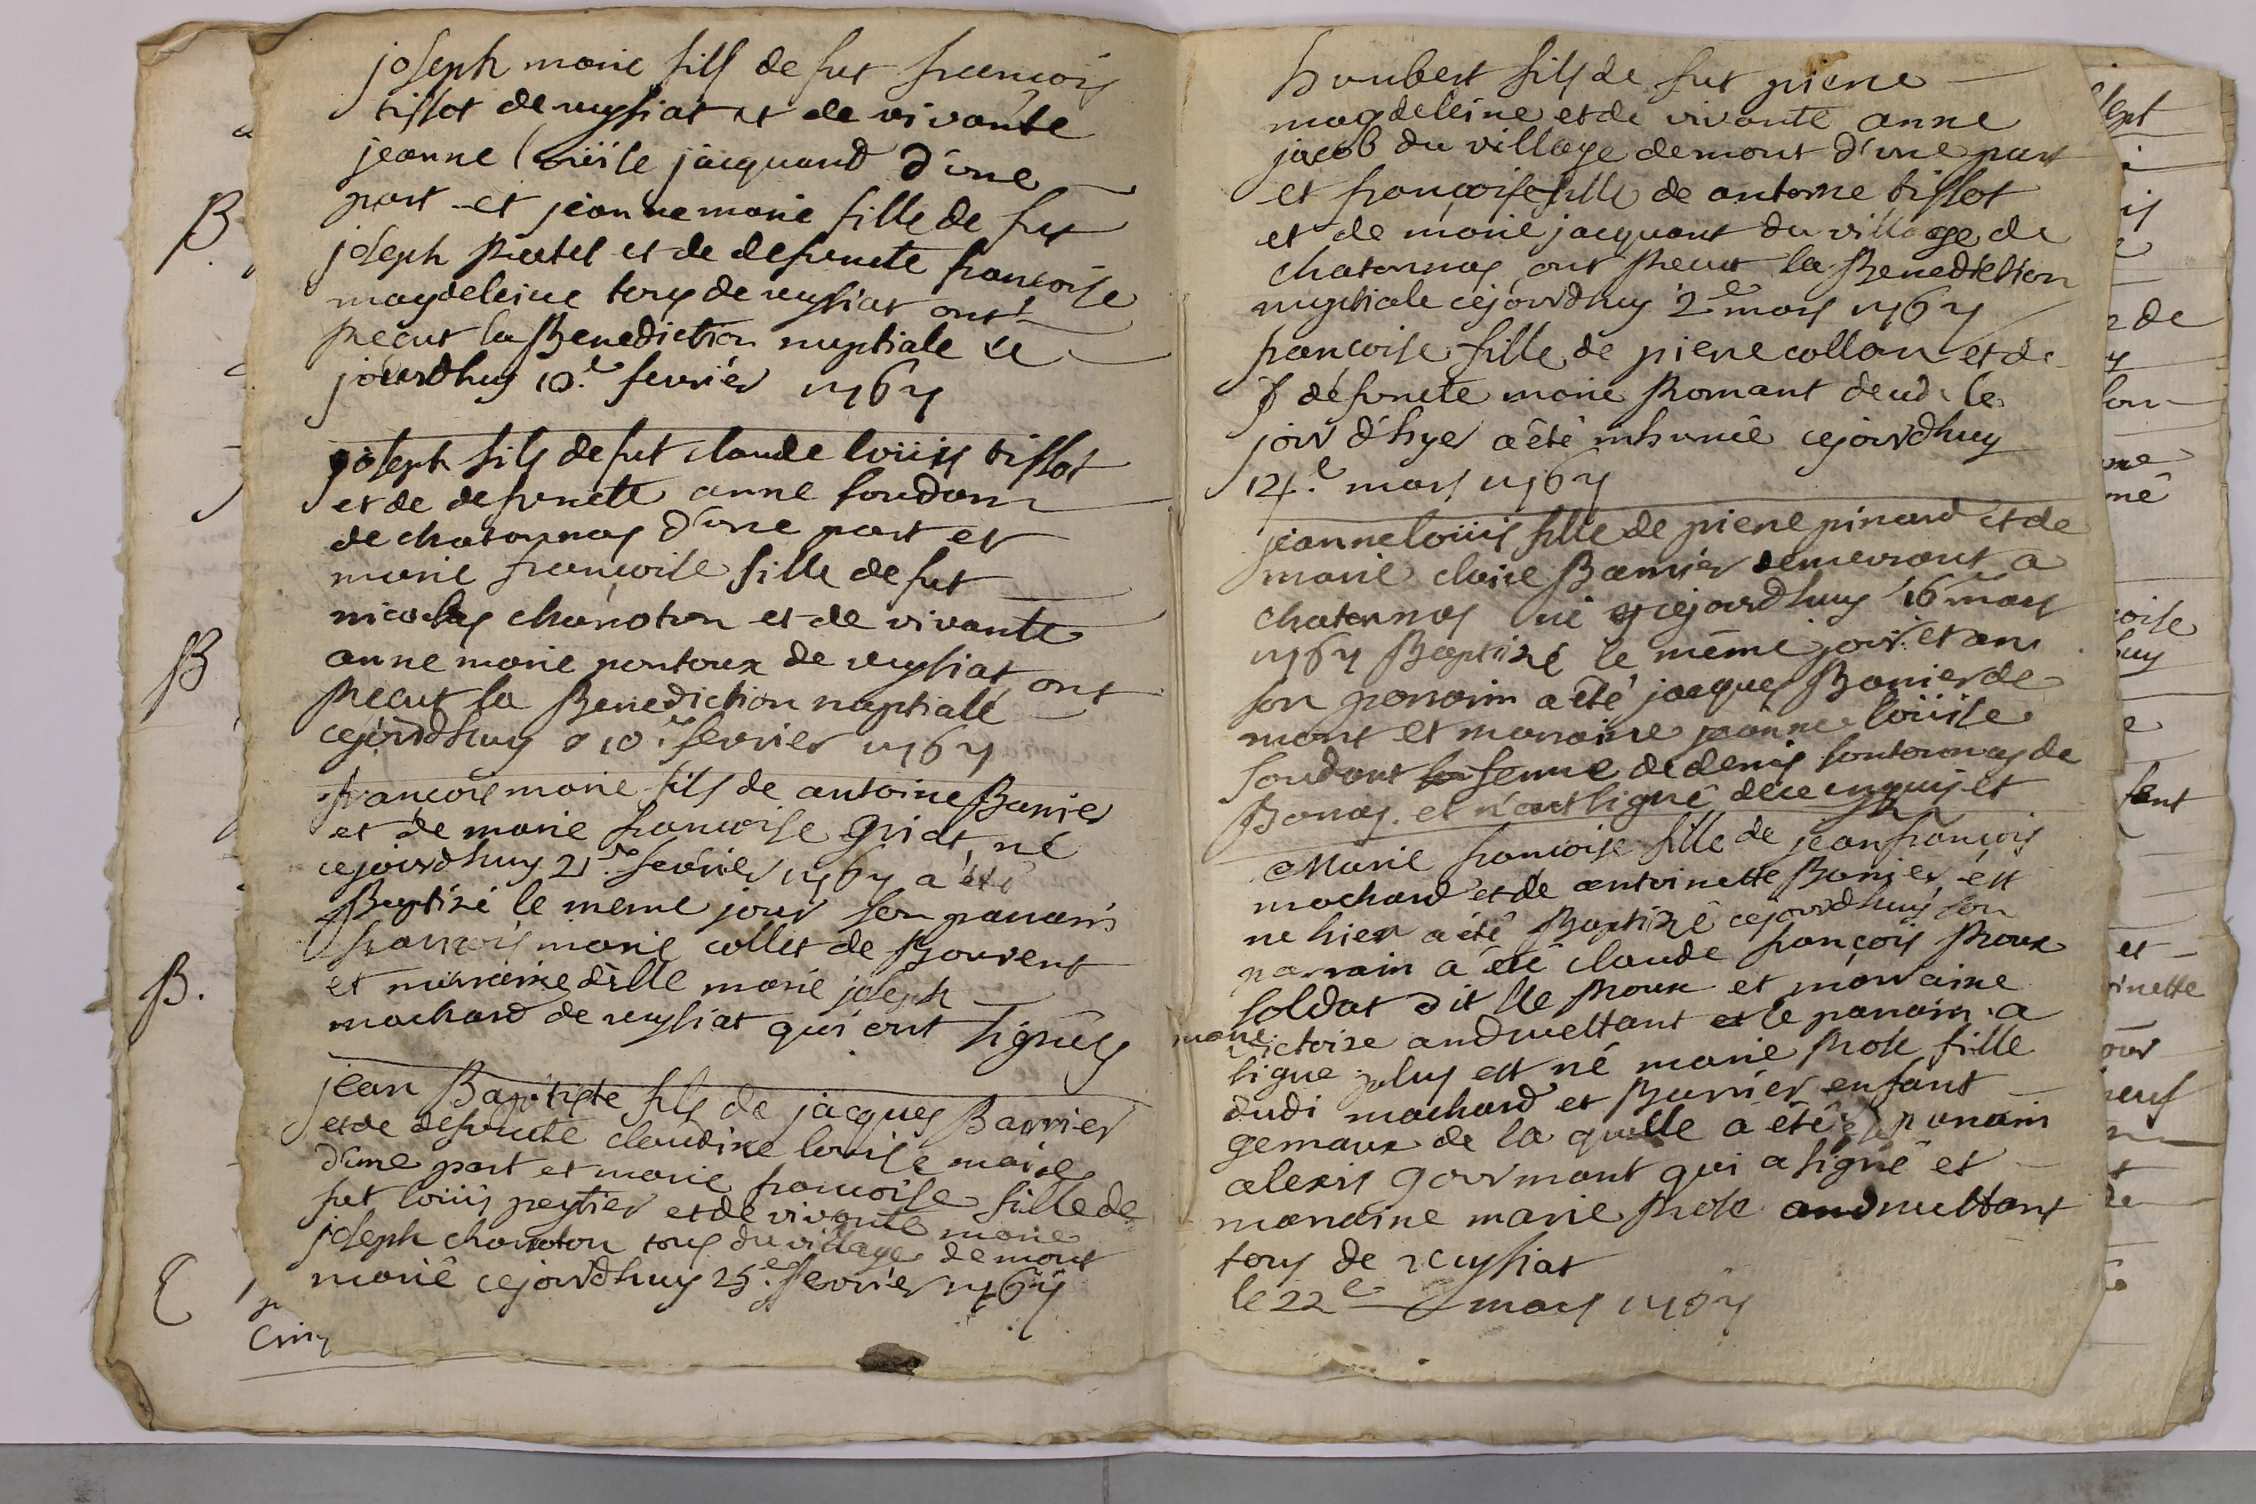 joseph marie fils de fut francois
tissot de reyssiat et de vivante
jeanne loüise jacquand d'une
part et jeanne marie fille de fut
joseph Ratel et de defuncte francoise
magdeleine tous de reyssiat ont
Recut la Benediction nuptiale ce
jourdhuy 10.e fevriér 1767
joseph fils de fut claude loüis tissot
et de defuncte anne loudan
de chatonnay d'une part et
marie francoise fille de fut
nicolas chanoton et de vivante
anne marie pontoux de reyssiat ont
Recut la Benediction nuptiale
cejourdhuy 10.e fevrier 1767
francois marie fils de antoine Barrier
et de marie francoise né
cejourdhuy 21.e fevrier 1767 a été
Baptizé le meme jour son parrain
francois marie collet de Bouvent
et marraine délle marie joseph
mochard de reyssiat qui ont signés
jean Baptiste fils de jacques Barrier
et de defuncte claudine louise maire
d'une part et marie francoise fille de
fut loüis peytier et de vivante marie
joseph chanoton tous du village de mont
marié cejourdhuy 25.e fevrier 1767
B.
B
B.
houbert fils de fut pierre
magdeleine et de vivante anne
jacob du village demont d'une part
et francoise fille de antoine tissot
et de marie jacquant du village de
chatonnay ont Recut la Benediction
nuptiale cejourdhuy 2e mars 1767
françoise fille de pierre collan et de
defuncte marie Romant le
jour d'hyer a été inhumé cejourdhuy
14.e mars 1767
jeanne loüis fille de pierre pinard et de
marie claire Barrier demeurant a
chatonnay né cejourdhuy 16 mars
1767 Baptizé le même jour et an
son parrain a été jacques Barrier de
mont et marraine jeanne loüise
loudant femme de denis de
et n'ont signé de ce enquis et
Marie francoise fille de jean francois
mochard et de antoinette Barrier est
ne hier a été Baptizé cejourdhuy son
parrain a été claude françois Roux
soldat dit lle Roux et marraine
marie victoire andruettant et le parrain a
signe plus est né marie Rose fille
dudi mochard et Barrier enfant
gemaux de la quelle a été le parrain
alexis gourmant qui a signé et
marraine marie Rose andruettant
tous de reyssiat
le 22e mars 1767